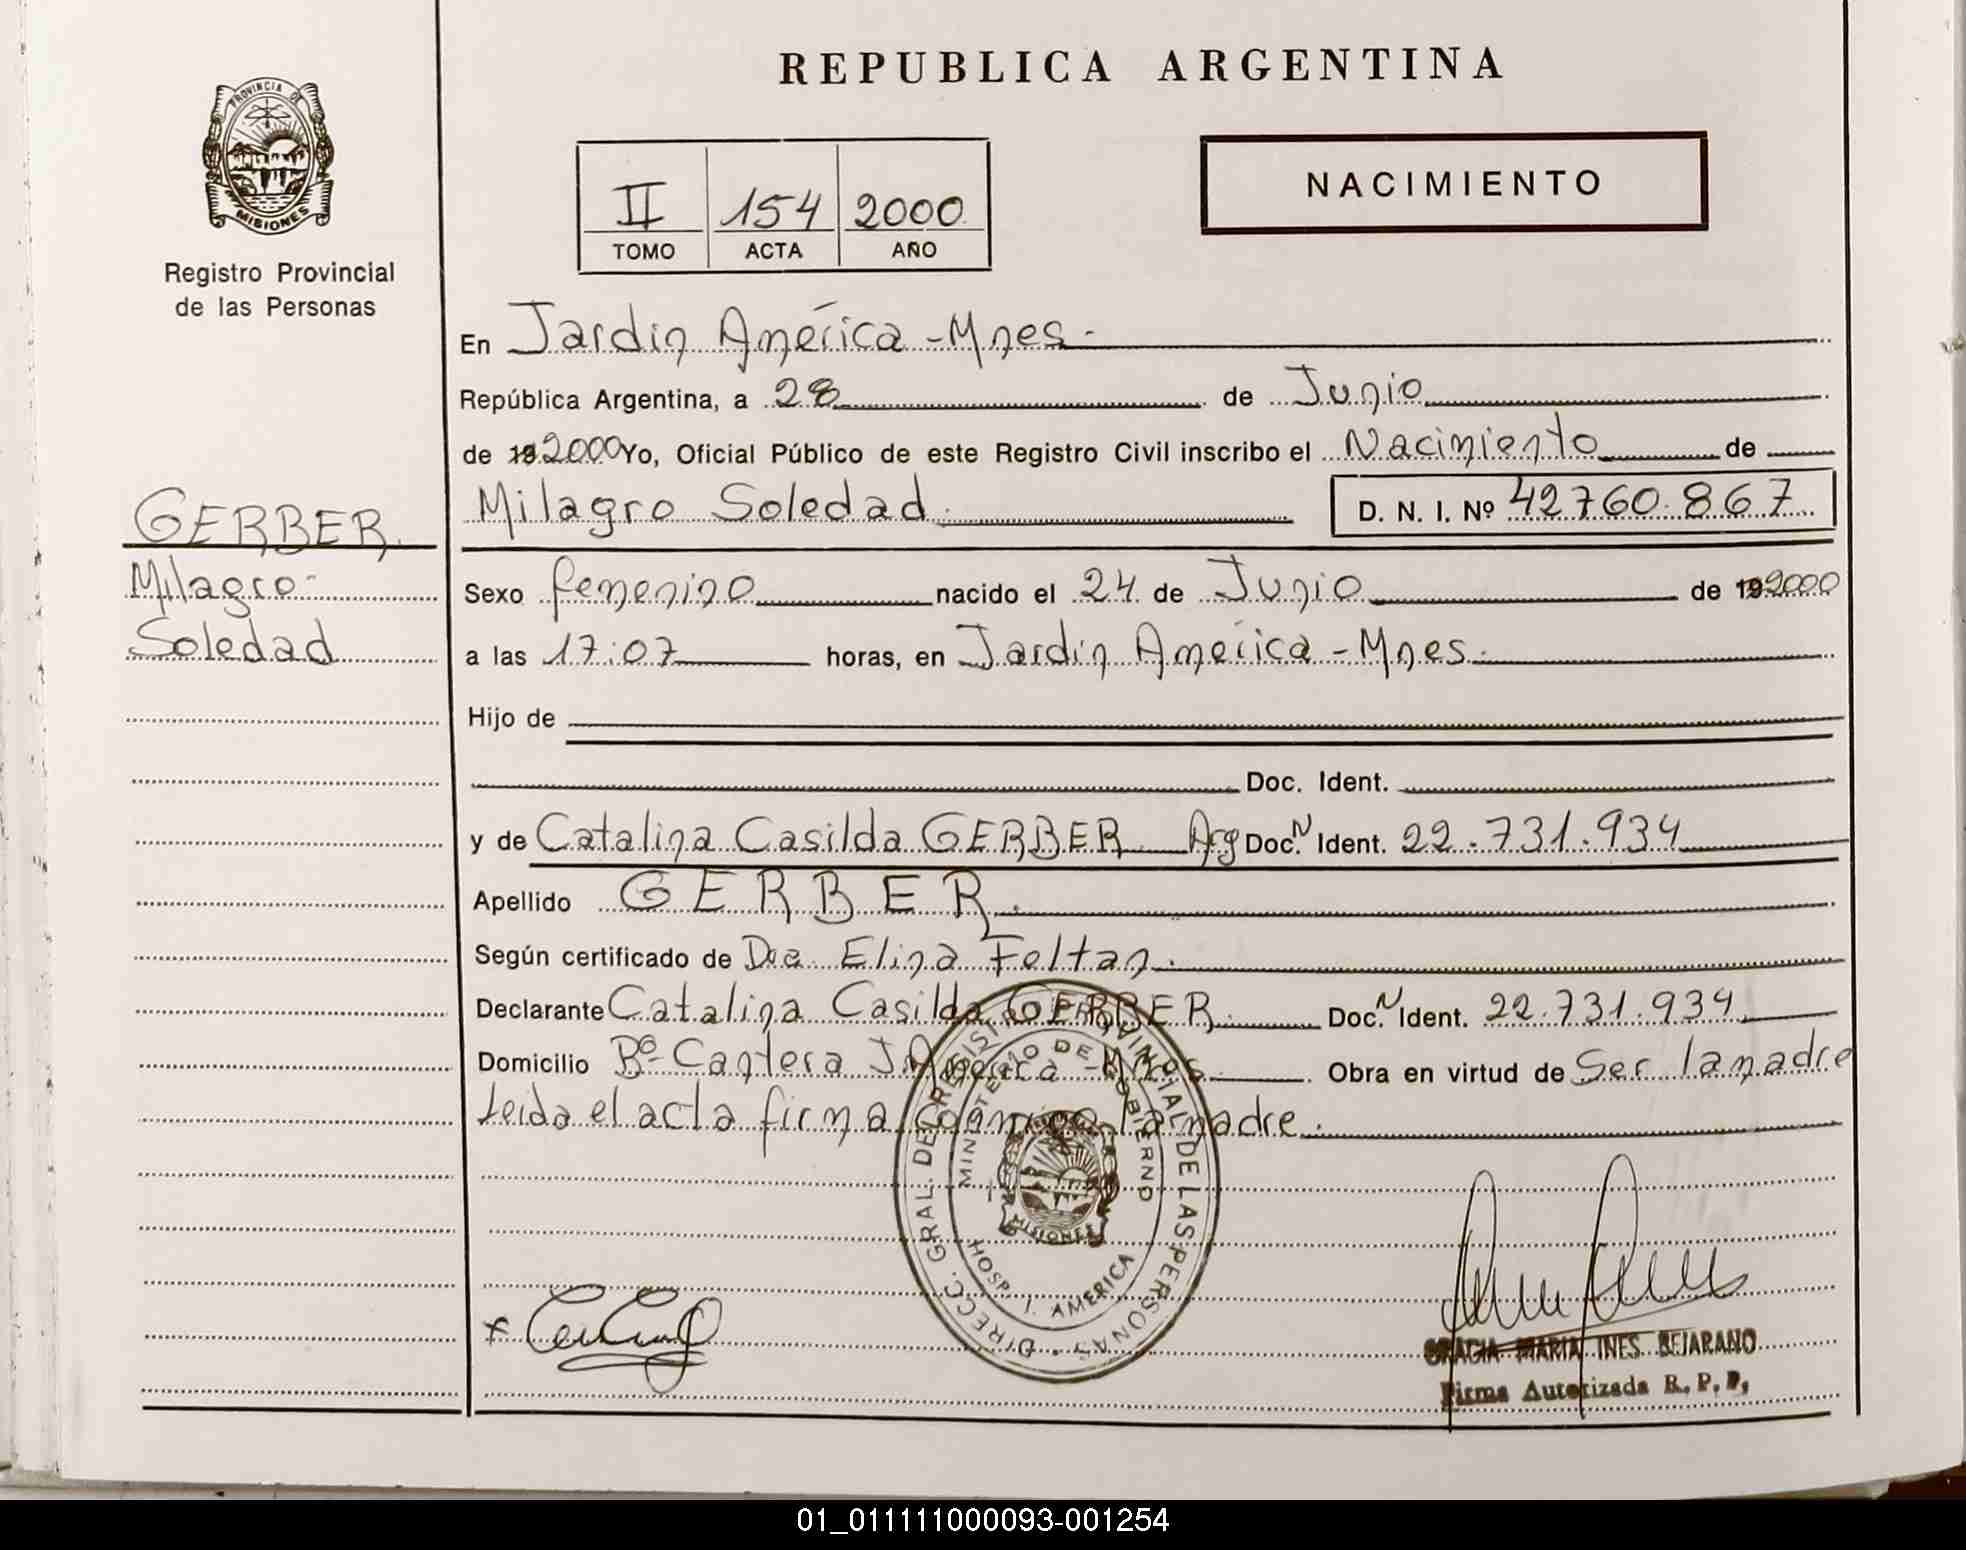 REPUBLICA ARGENTINA
PROVINCIA DE
MISIONES
Registro Provincial
de las Personas
II 154 2000
TOMO ACTA AÑO
NACIMIENTO
En Jardin América - Mnes.-
República Argentina, a 28 de Junio
de 19 2000 Yo, Oficial Público de este Registro Civil inscribo el Nacimiento de
Milagro Soledad. D. N. I. Nº 42.760.867
GERBER.
Milagro-
Soledad
Sexo femenino nacido el 24 de Junio de 19 2000
a las 17:07 horas, en Jardin América - Mnes.
Hijo de
Doc. Ident.
y de Catalina Casilda GERBER Arg Doc. N Ident. 22.731.934
Apellido GERBER.
Según certificado de Dra. Elina Feltan.
Declarante Catalina Casilda GERBER. Doc. N Ident. 22.731.934
Domicilio Bº Cantera J. América - Mnes. Obra en virtud de Ser la madre
Leida el acta firma conmigo la madre.
DIRECC. GRAL. DEL REGISTRO PROVINCIAL DE LAS PERSONAS
MINISTERIO DE GOBIERNO
MISIONES
HOSP. J. AMERICA
GRACIA MARIA INES BEJARANO
Firma Autorizada R. P. P.
01_011111000093-001254